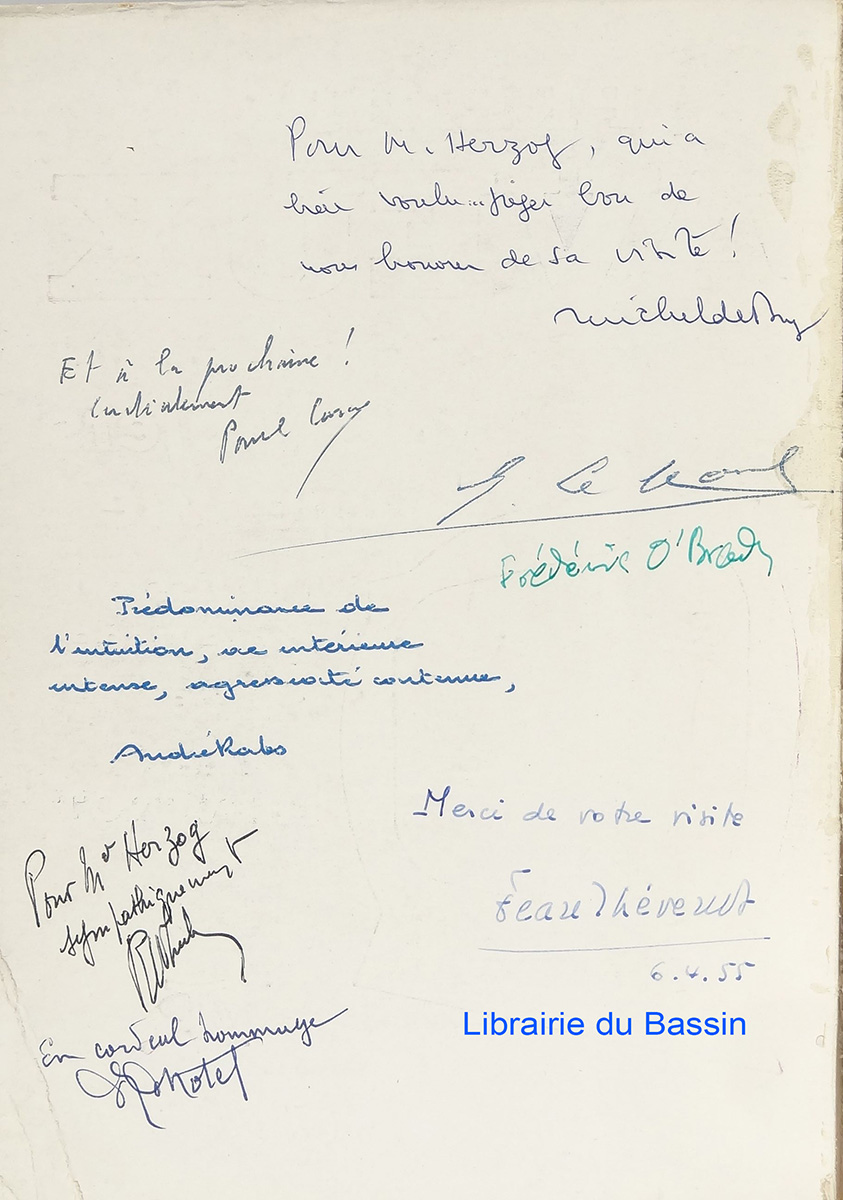 Pour M. Herzog, qui a
bien voulu... piéger lors de
nous honorer de sa visite !
Et à la prochaine !
Cordialement
Paul
G. Le
Frédéric O'Brady
Prédominance de
l'intuition, vie intérieure
intense, agressivité contenue,
André Rabs
Merci de votre visite
Jean Thévenot
6.4.55
Pour Mr Herzog
sympathiquement
En cordial hommage
Librairie du Bassin